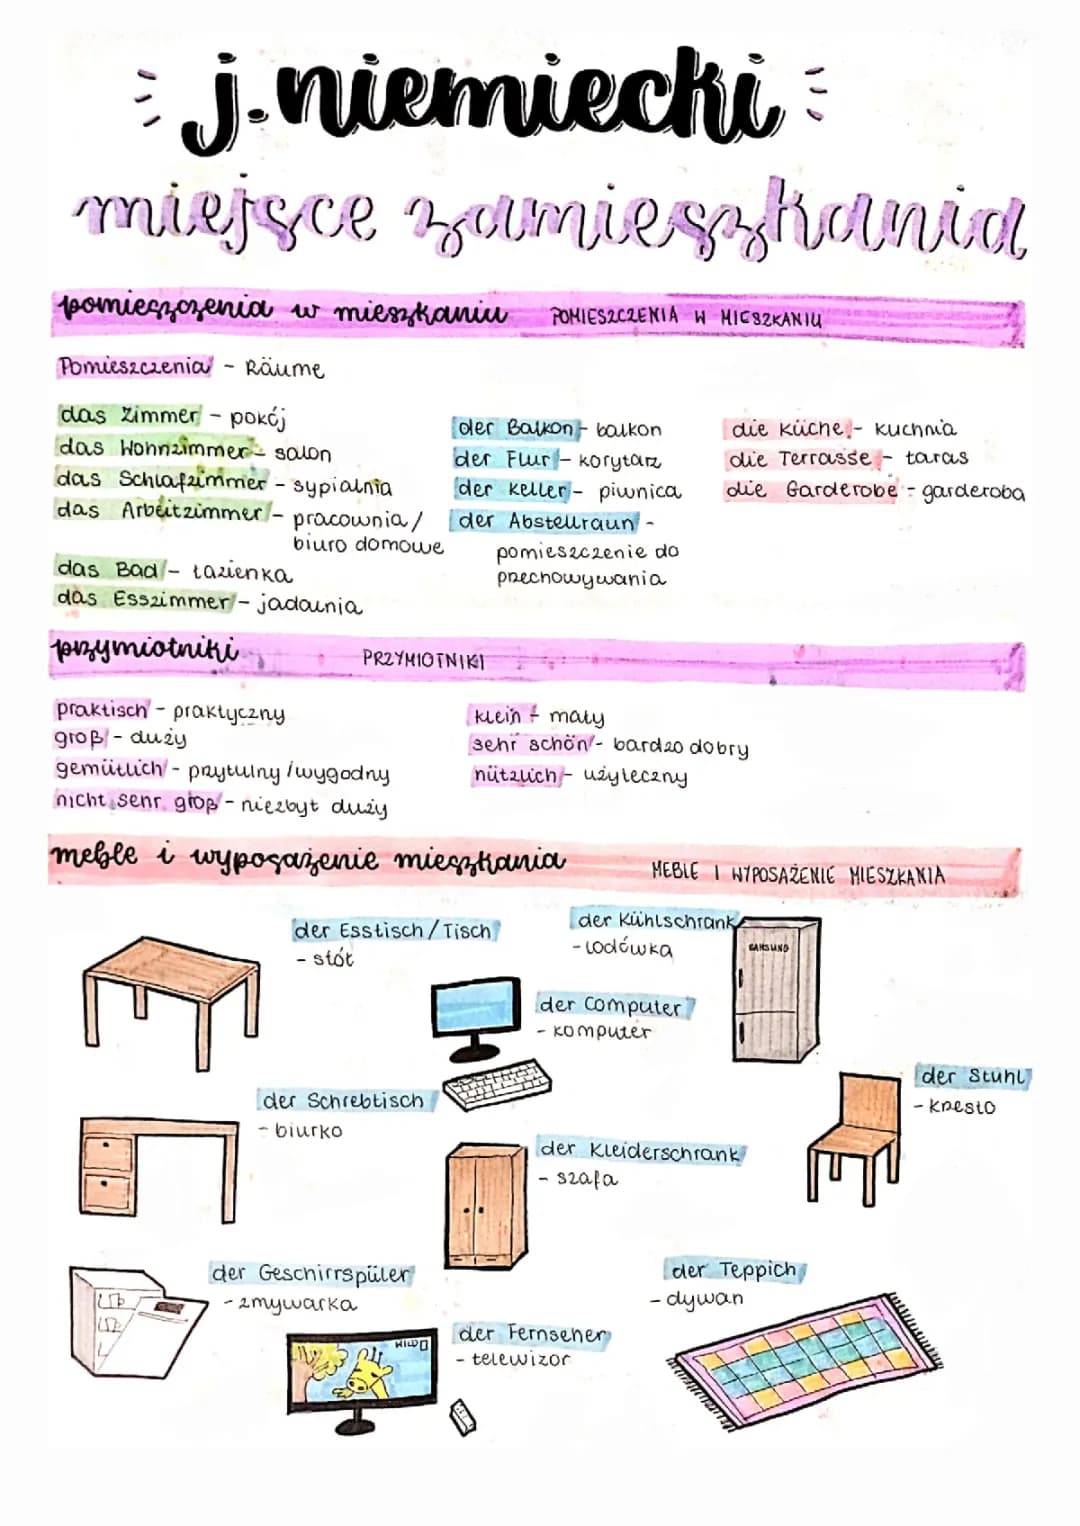 j. niemiecki
miejsce zamieszkania
pomieszczenia w mieszkaniu POMIESZCZENIA W MIESZKANIU
Pomieszczenia - Räume
das Zimmer - pokój
das Wohnzimmer - salon
das Schlafzimmer - sypialnia
das Arbeitzimmer - pracownia /
biuro domowe
das Bad - łazienka
das Esszimmer - jadalnia
der Balkon - balkon
der Flur - korytarz
der Keller - piwnica
der Abstellraun -
pomieszczenie do
przechowywania
die Küche - kuchnia
die Terrasse - taras
die Garderobe - garderoba
przymiotniki PRZYMIOTNIKI
praktisch - praktyczny
groß - duży
gemütlich - przytulny / wygodny
nicht sehr groß - niezbyt duży
klein - mały
sehr schön - bardzo dobry
nützlich - użyteczny
meble i wyposażenie mieszkania MEBLE I WYPOSAŻENIE MIESZKANIA
der Esstisch / Tisch
- stół
der Kühlschrank
- lodówka
SAMSUNG
der Computer
- komputer
der Stuhl
- krzesło
der Schrebtisch
- biurko
der Kleiderschrank
- szafa
der Geschirrspüler
- zmywarka
der Teppich
- dywan
der Fernseher
- telewizor